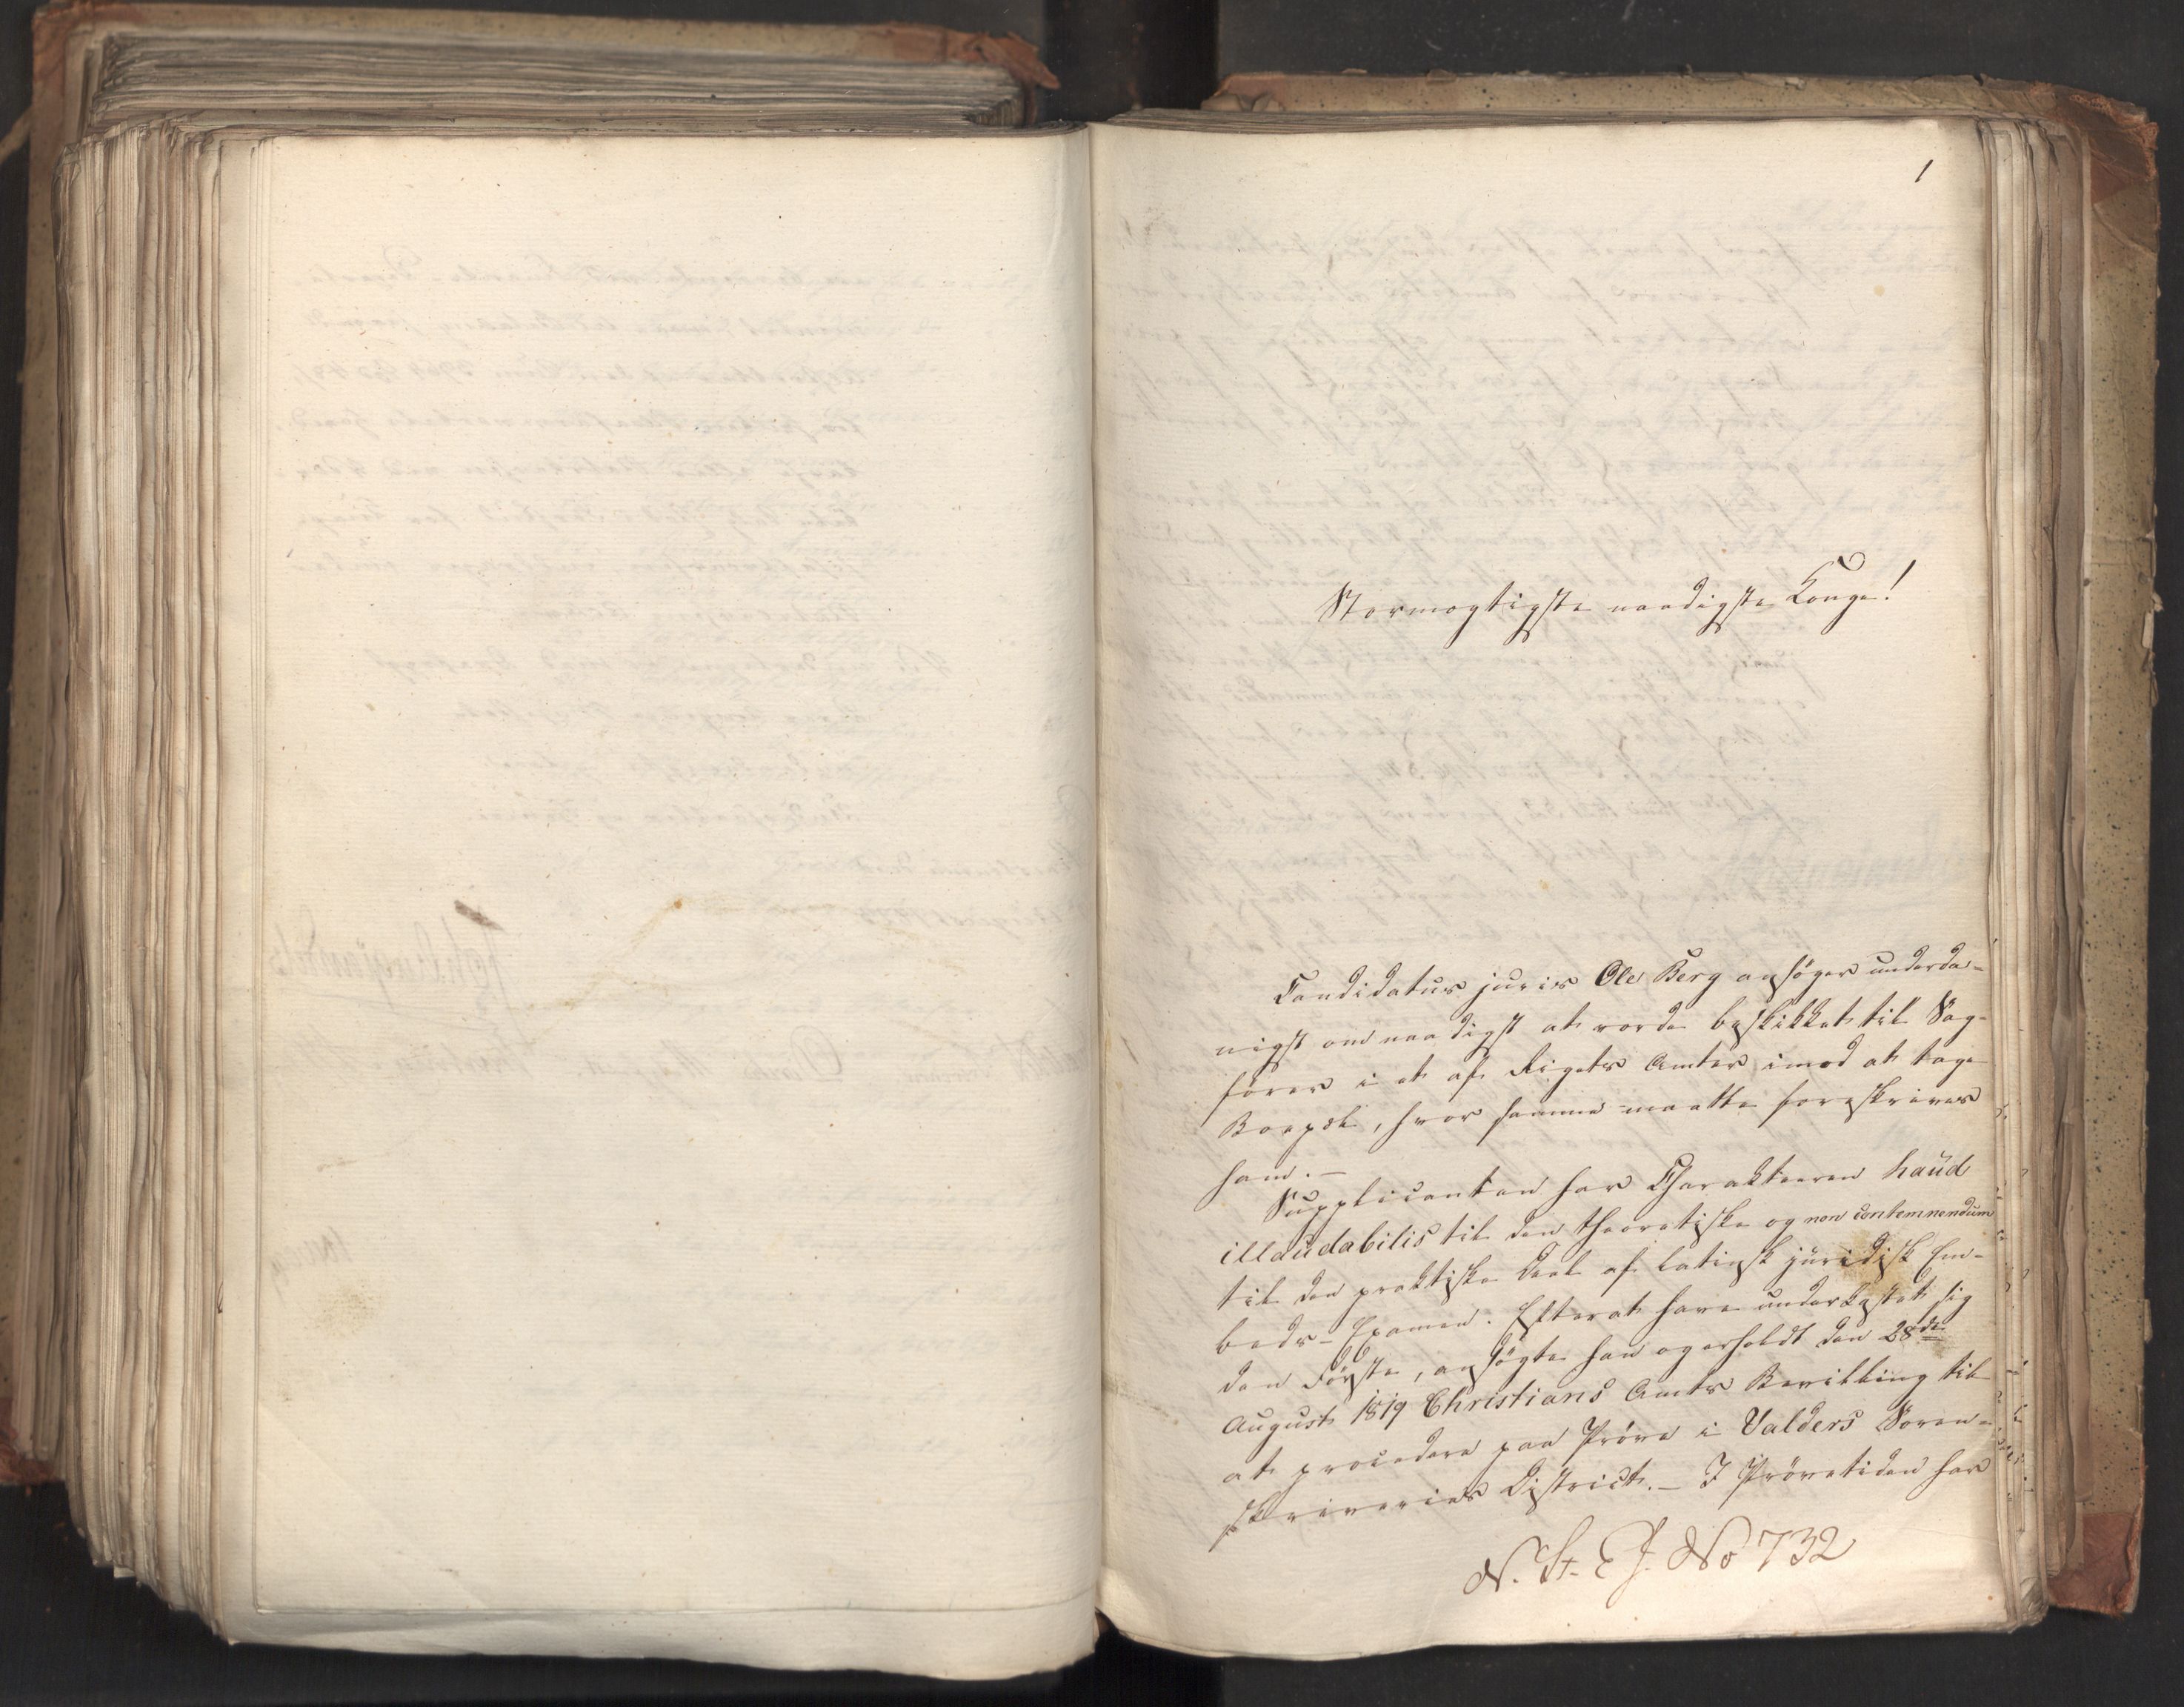 1
Stormægtigste naadigste Konge!
Candidatus juris Ole Berg ansøger underda-
nigst om naadigst at vorde beskikket til Sag-
fører i et af Rigets Amter imod at tage
Boepæl, hvor samme maatte foreskrives
ham. —
Supplicanten har Charakteeren haud
illaudabilis til den theoretiske og non contemnendum
til den praktiske Deel af latinsk juridisk Em-
beds-Examen. Efterat have underkastet sig
den Første, ansøgte han og erholdt den 28de
August 1819 Christians Amts Bevilling til
at procedere paa Prøve i Valders Soren-
skriveries District. — I Prøvetiden har
N. St. E J. No 732